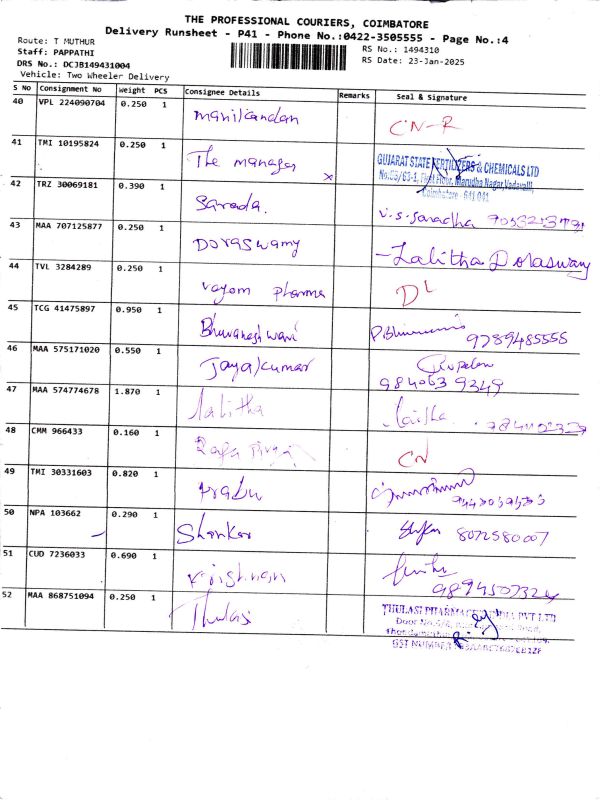 THE PROFESSIONAL COURIERS, COIMBATORE
Delivery Runsheet - P41 - Phone No.:0422-3505555 - Page No.:4
Route: T MUTHUR
RS No.: 1494310
Staff: PAPPATHI
RS Date: 23-Jan-2025
DRS No.: DCJB149431004
Vehicle: Two Wheeler Delivery
S No Consignment No Weight PCS Consignee Details Remarks Seal & Signature
40 VPL 224090704 0.250 1 Manikandan CN-R
41 TMI 10195824 0.250 1 The manager x
GUJARAT STATE FERTILIZERS & CHEMICALS LTD
First Floor, Marudha Nagar, Vadavalli,
Coimbatore - 641 041
42 TRZ 30069181 0.390 1 Sarada. V.S. Saradha
43 MAA 707125877 0.250 1 Doraswamy - Lalitha Doraswamy
44 TVL 3284289 0.250 1 Vayom pharma DL
45 TCG 41475897 0.950 1 Bhuvaneshwari 9789485555
46 MAA 575171020 0.550 1 Jayakumar
9840639349
47 MAA 574774678 1.870 1 Lalitha
48 CMM 966433 0.160 1 CN
49 TMI 30331603 0.820 1 Prabu
50 NPA 103662 0.290 1 Shankar 8072580007
51 CUD 7236033 0.690 1 Krishnan
9894507324
52 MAA 868751094 0.250 1 Thulasi
THULASI PHARMACEUTICALS INDIA PVT LTD
Door No.
GST NUMBER